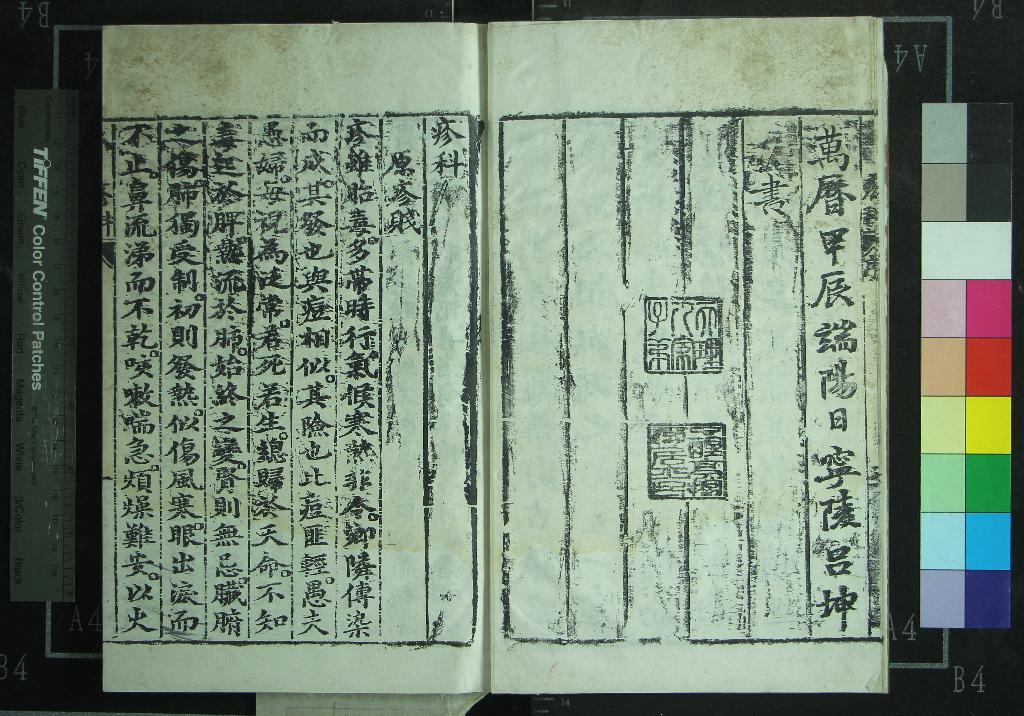 萬曆甲辰端陽日寧陵呂坤
書
疹科
原疹賦
疹雖胎毒多帶時行氣候寒熱非令鄉隣傳染
而成其發也與痘相似其險也比痘匪輕愚夫
愚婦每視為泛常若死若生總歸於天命不知
毒起於脾熱流於肺始終之變腎則無忌臟腑
之傷肺獨受制初則發熱似傷風寒眼出淚而
不止鼻流涕而不乾咳嗽喘急煩燥難安以火
TIFFEN Color Control Patches
Blue
Cyan
Green
Yellow
Red
Magenta
White
3/Color
Black
B4
A4
A4
B4
B4
A4
A4
B4